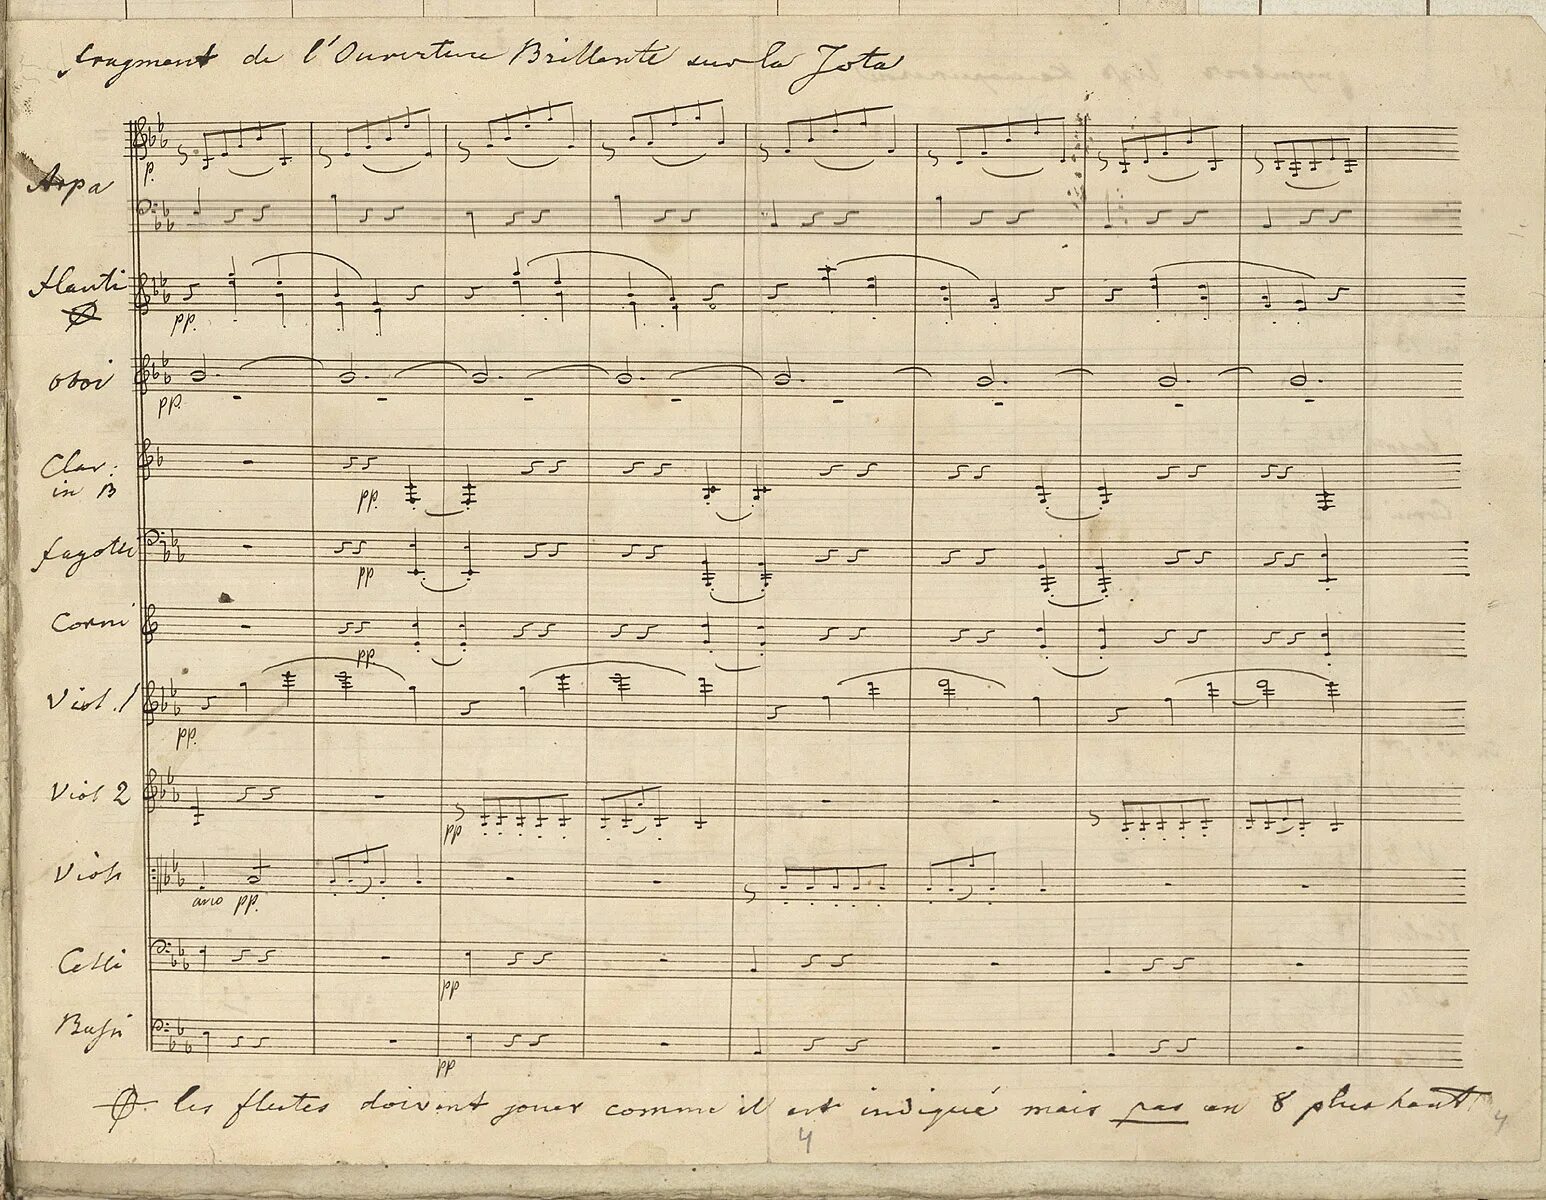 fragment de l'Ouverture Brillante sur la Jota
Arpa
p.
flauti
pp.
oboi
pp.
Clar.
in B
pp.
fagotti
pp
Corni
pp.
Viol. 1
pp.
Viol 2
pp
Viola
arco pp.
Celli
pp
Bassi
pp
les flutes doivent jouer comme il est indiqué mais pas en 8 plus haut
4
4